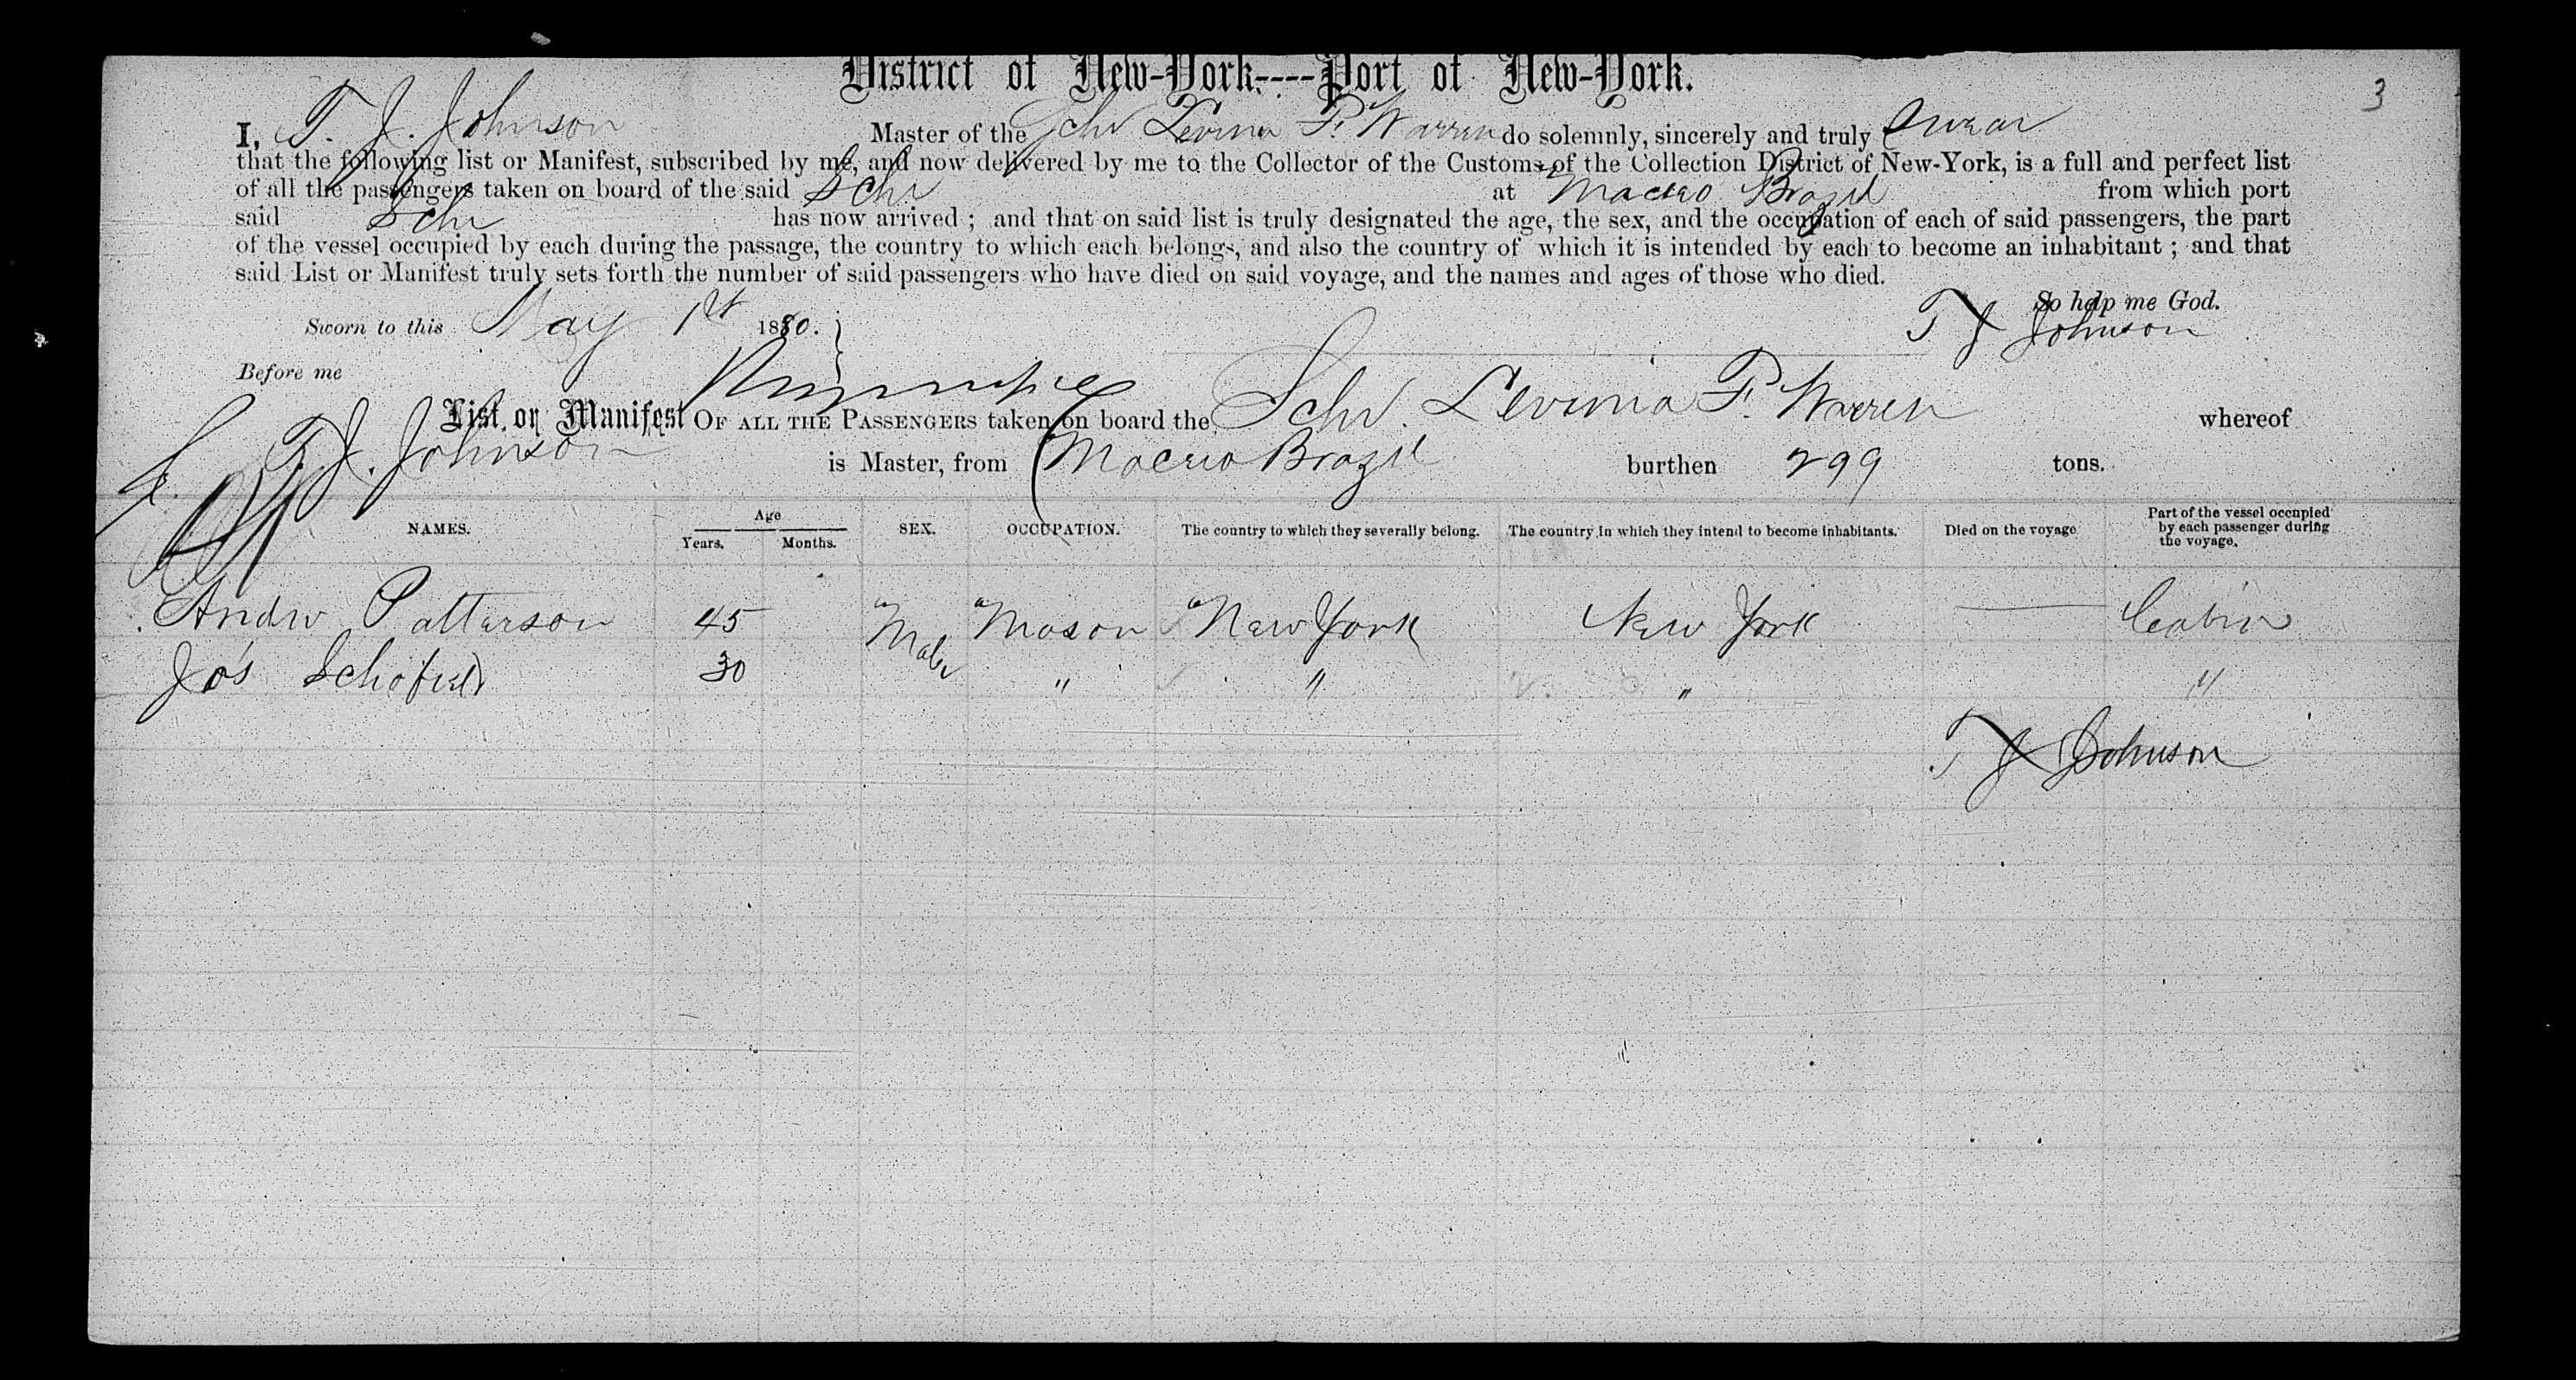 District of New-York----Port of New-York.
3
I, T. J. Johnson Master of the Schr Levinia F. Warren do solemnly, sincerely and truly Swear
that the following list or Manifest, subscribed by me, and now delivered by me to the Collector of the Customs of the Collection District of New-York, is a full and perfect list
of all the passengers taken on board of the said Schr at Maceio Brazil from which port
said Schr has now arrived ; and that on said list is truly designated the age, the sex, and the occupation of each of said passengers, the part
of the vessel occupied by each during the passage, the country to which each belongs, and also the country of which it is intended by each to become an inhabitant ; and that
said List or Manifest truly sets forth the number of said passengers who have died on said voyage, and the names and ages of those who died.
So help me God.
Sworn to this May 1st 1880. T J Johnson
Before me
List or Manifest OF ALL THE PASSENGERS taken on board the Schr. Levinia F. Warren whereof
T. J. Johnson is Master, from Maceio Brazil burthen 299 tons.
NAMES. Age Years. Months. SEX. OCCUPATION. The country to which they severally belong. The country in which they intend to become inhabitants. Died on the voyage Part of the vessel occupied by each passenger during the voyage.
Andw Patterson 45 Male Mason New York New York Cabin
Jos Schofield 30 " " " "
T J Johnson